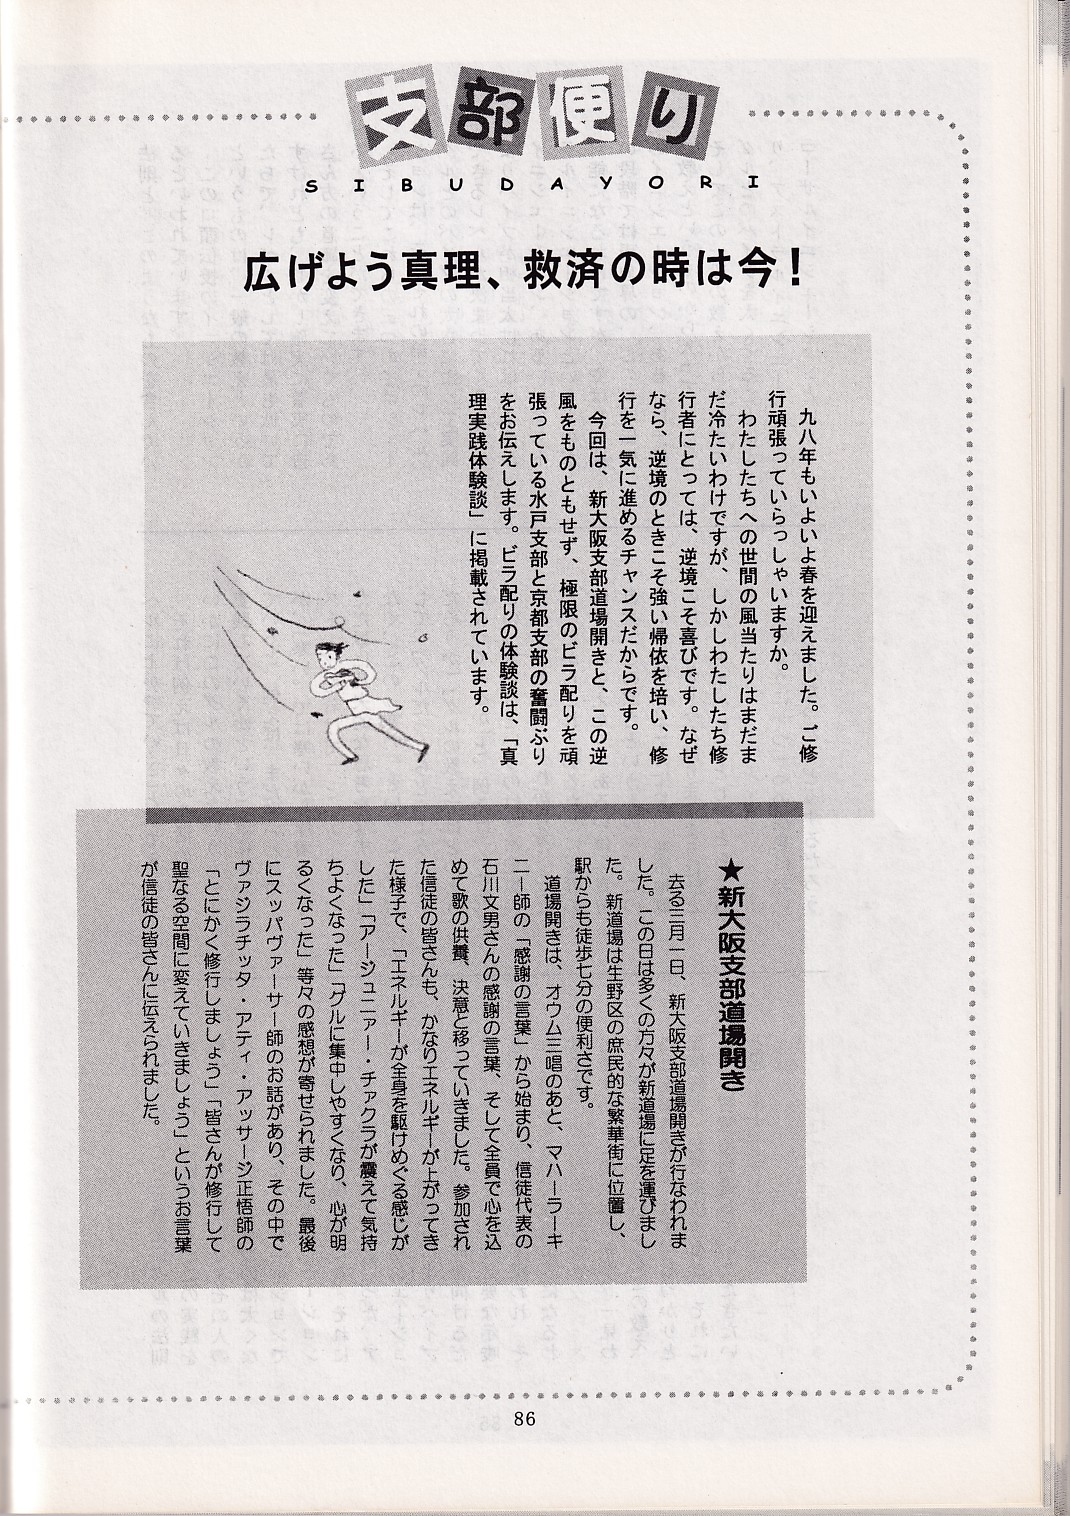 支部便り
SIBUDAYORI
広げよう真理、救済の時は今！
九八年もいよいよ春を迎えました。ご修
行頑張っていらっしゃいますか。
わたしたちへの世間の風当たりはまだま
だ冷たいわけですが、しかしわたしたち修
行者にとっては、逆境こそ喜びです。なぜ
なら、逆境のときこそ強い帰依を培い、修
行を一気に進めるチャンスだからです。
今回は、新大阪支部道場開きと、この逆
風をものともせず、極限のビラ配りを頑
張っている水戸支部と京都支部の奮闘ぶり
をお伝えします。ビラ配りの体験談は、「真
理実践体験談」に掲載されています。
★新大阪支部道場開き
去る三月一日、新大阪支部道場開きが行なわれま
した。この日は多くの方々が新道場に足を運びまし
た。新道場は生野区の庶民的な繁華街に位置し、
駅からも徒歩七分の便利さです。
道場開きは、オウム三唱のあと、マハーラーキ
ニー師の「感謝の言葉」から始まり、信徒代表の
石川文男さんの感謝の言葉、そして全員で心を込
めて歌の供養、決意と移っていきました。参加され
た信徒の皆さんも、かなりエネルギーが上がってき
た様子で、「エネルギーが全身を駆けめぐる感じが
した」「アージュニァー・チァクラが震えて気持
ちよくなった」「グルに集中しやすくなり、心が明
るくなった」等々の感想が寄せられました。最後
にスッパヴァーサー師のお話があり、その中で
ヴァジラチッタ・アティ・アッサージ正悟師の
「とにかく修行しましょう」「皆さんが修行して
聖なる空間に変えていきましょう」というお言葉
が信徒の皆さんに伝えられました。
86